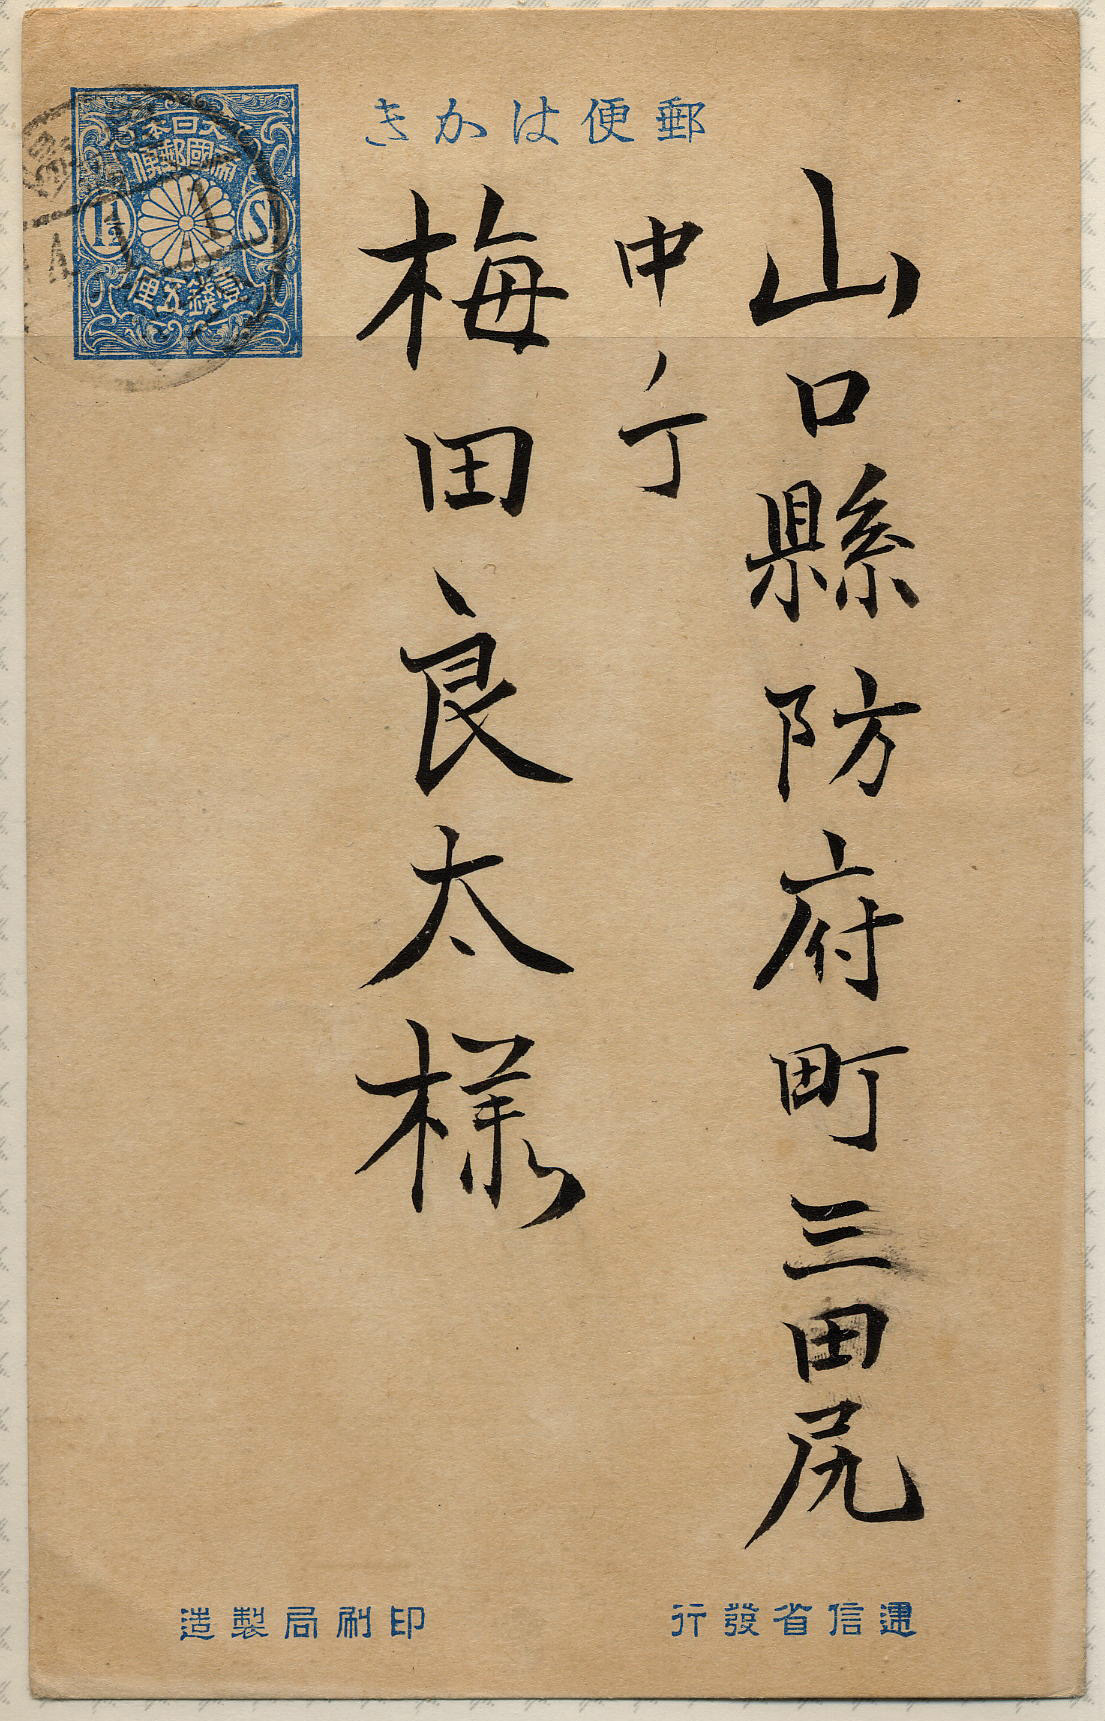 郵便はかき
大日本
帝國郵便
1½
Sn
壹錢五厘
山口縣防府町三田尻
中ノ丁
梅田良太様
遞信省發行
印刷局製造